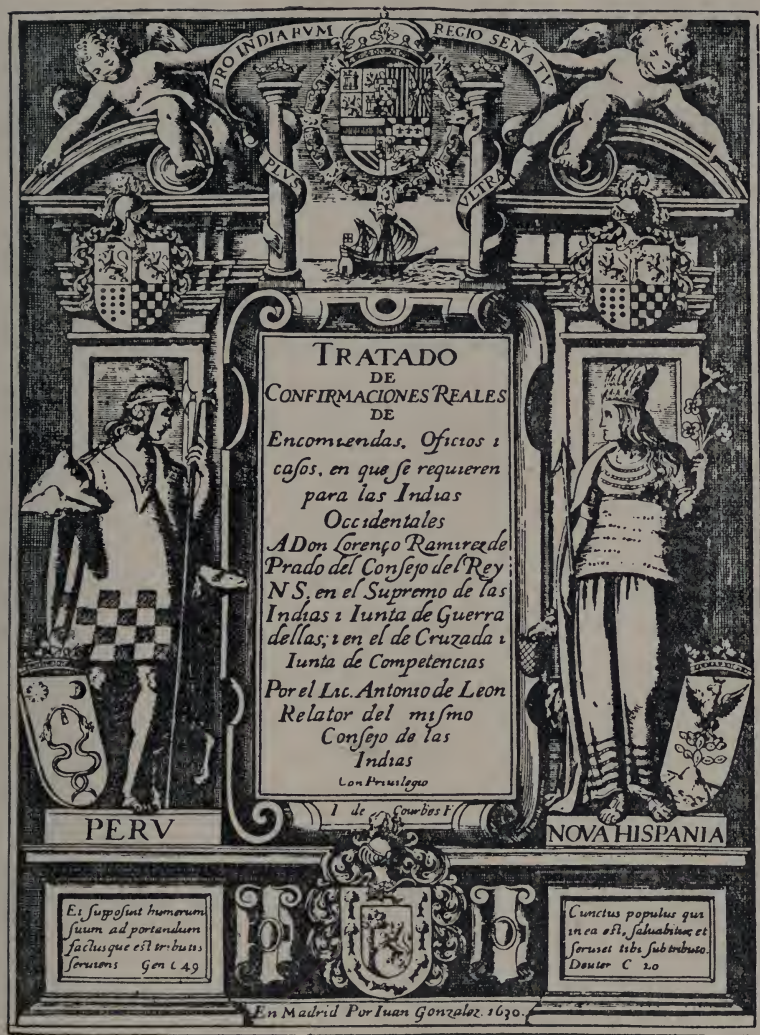 PRO INDIARVM REGIO SENATV
PLVS VLTRA
TRATADO
DE
CONFIRMACIONES REALES
DE
Encomiendas, Oficios i
casos, en que se requieren
para las Indias
Occidentales
A Don Lorenço Ramirez de
Prado del Consejo del Rey
N S, en el Supremo de las
Indias i Iunta de Guerra
dellas; i en el de Cruzada i
Iunta de Competencias
Por el Lic. Antonio de Leon
Relator del mismo
Consejo de las
Indias
Con Privilegio
I de Courbes F
PERV
NOVA HISPANIA
Et supposuit humerum
suum ad portandum
factusque est tributis
serviens Gen C 49
Cunctus populus qui
in ea est, salvabitur, et
serviet tibi sub tributo.
Deuter C 20
En Madrid Por Iuan Gonzalez. 1630.